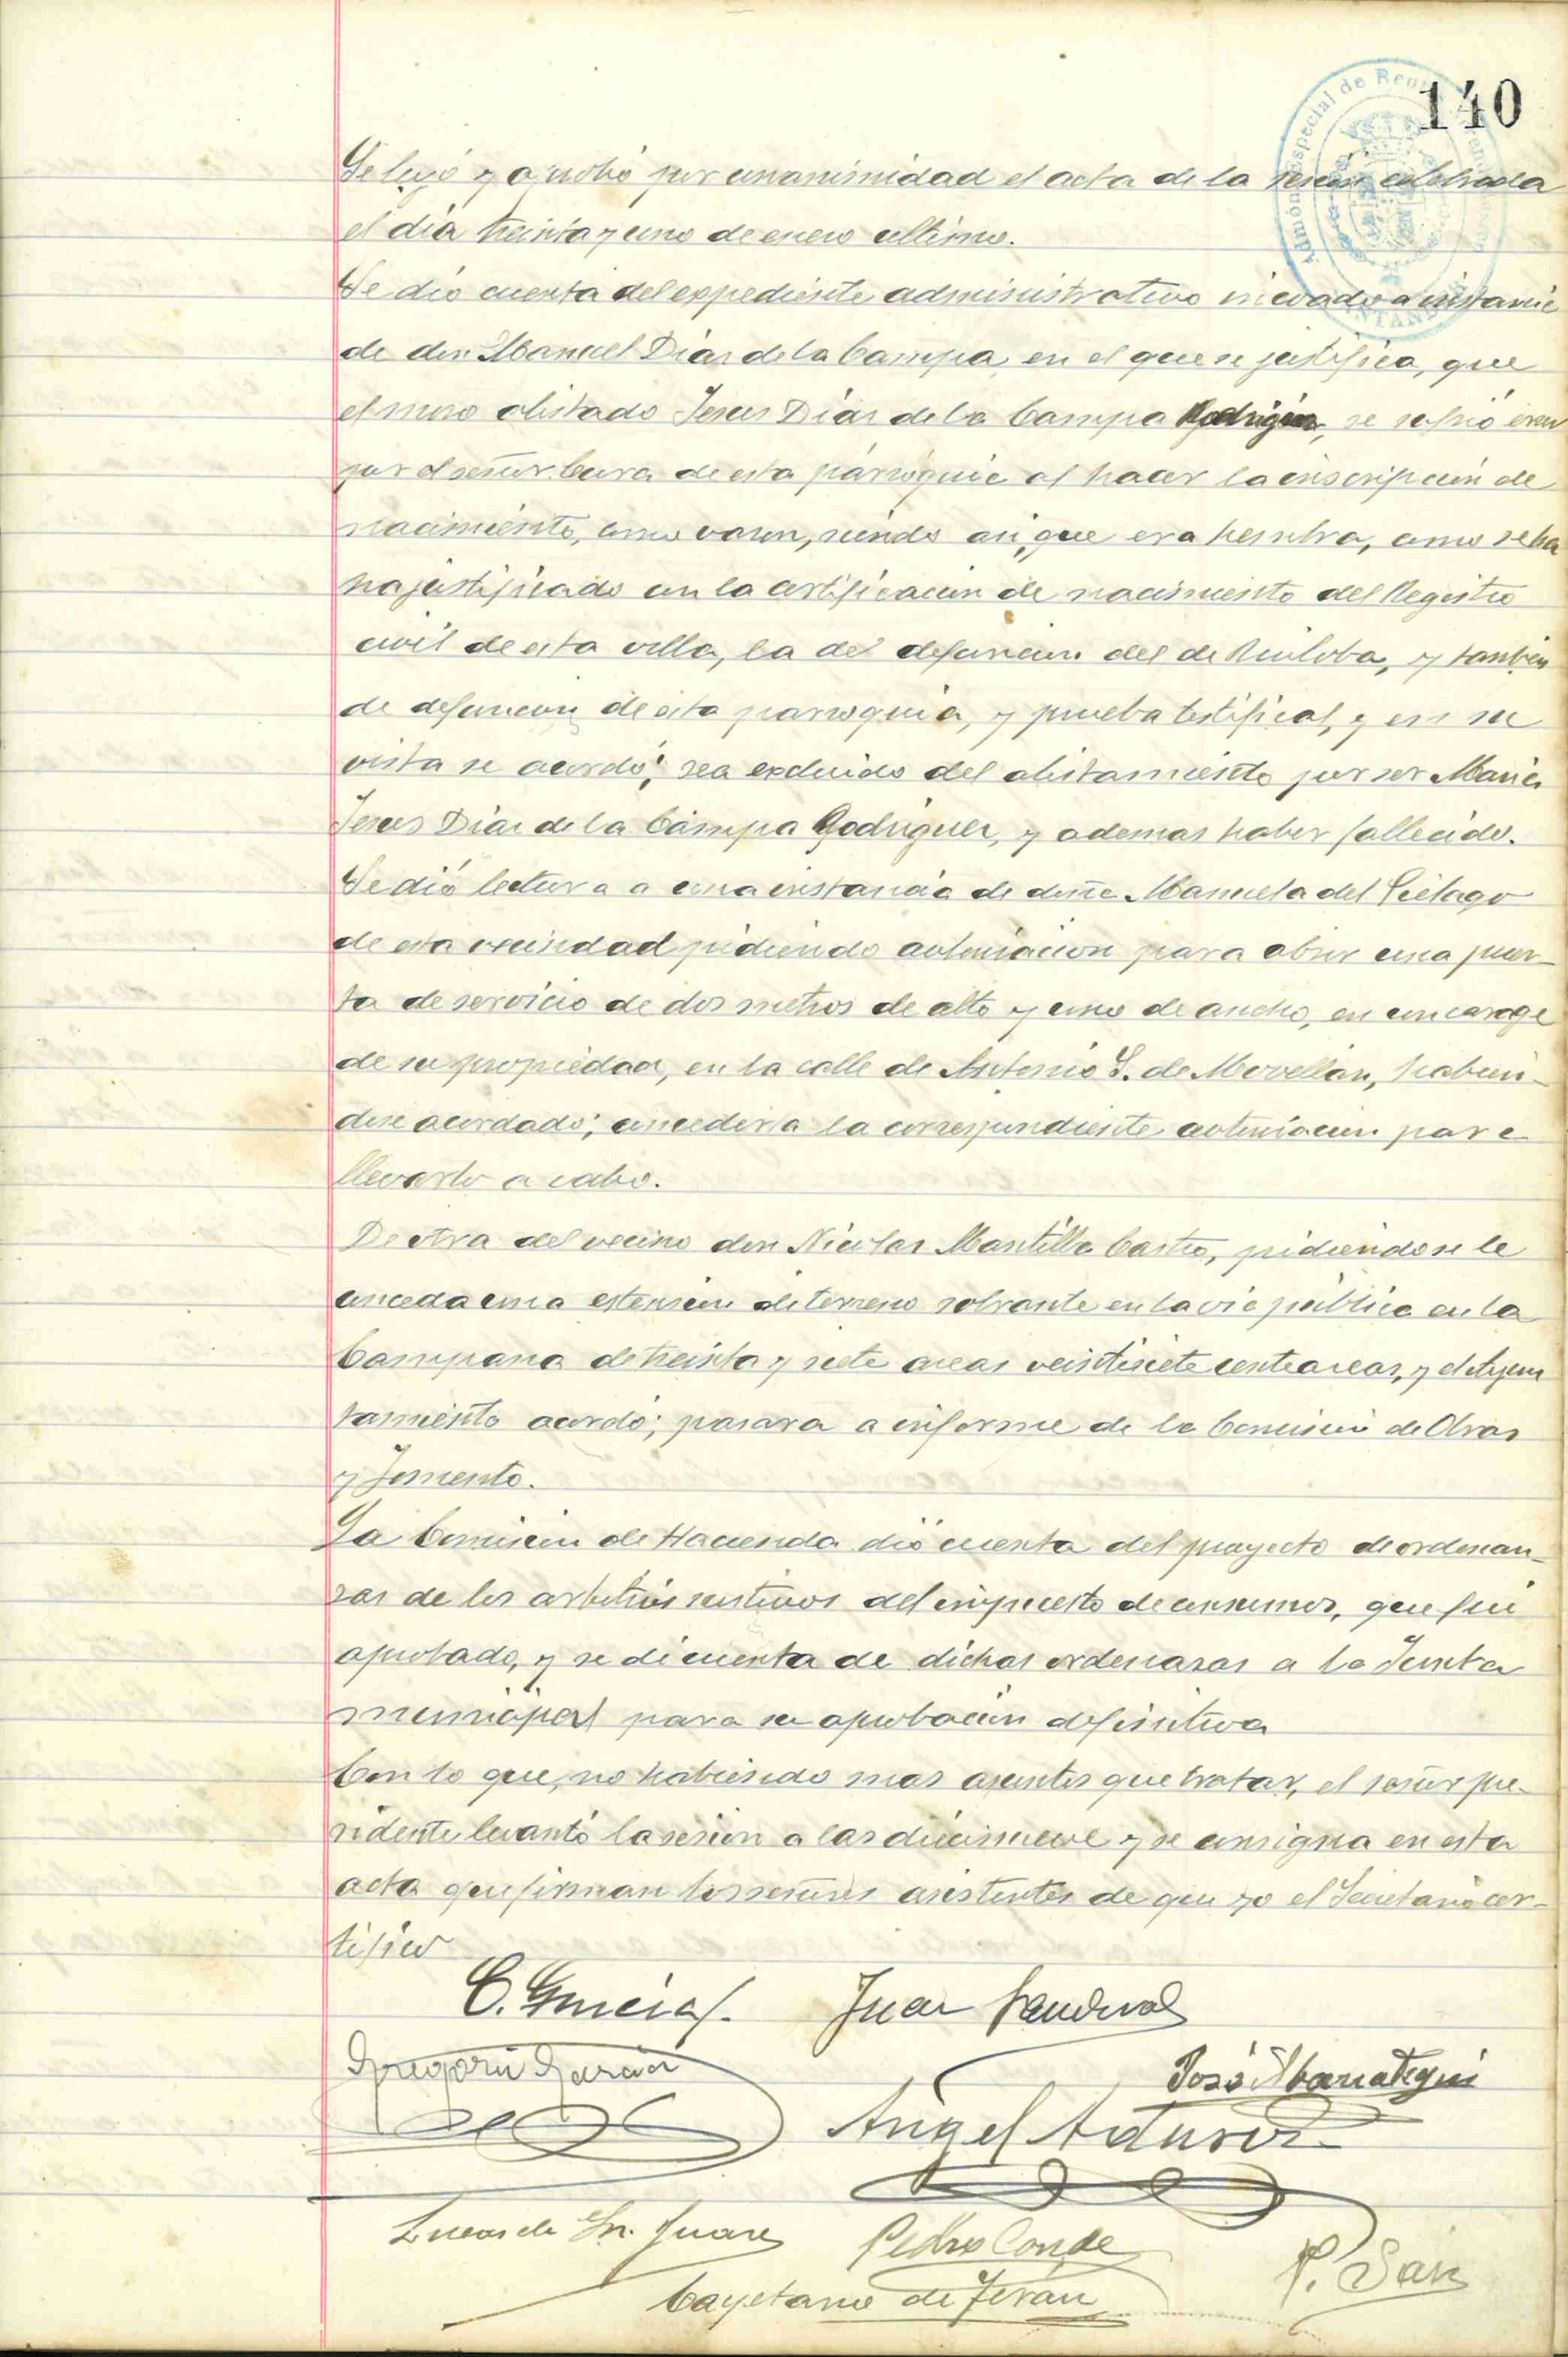 140
Se leyó y aprobó por unanimidad el acta de la sesion celebrada
el dia treinta y uno de enero ultimo.
Se dió cuenta del expediente administrativo incoado a instancia
de don Manuel Diaz de la Campa, en el que se justifica, que
el mozo alistado Jesus Diaz de la Campa Rodriguez, se sufrió error
por el señor Cura de esta parroquia al hacer la inscripcion de
nacimiento, como varon, siendo asi, que era hembra, como se ha
ha justificado con la certificacion de nacimiento del Registro
civil de esta villa, la de defuncion del de Ruiloba, y tambien
de defuncion de esta parroquia, y prueba testifical, y en su
vista se acordó; sea excluido del alistamiento por ser Maria
Jesus Diaz de la Campa Rodriguez, y ademas haber fallecido.
Se dió lectura a una instancia de doña Manuela del Piélago
de esta vecindad pidiendo autorizacion para abrir una puer-
ta de servicio de dos metros de alto y uno de ancho, en un
de su propiedad, en la calle de Antonio S. de Movellan, habien-
dose acordado; concederla la correspondiente autorizacion para
llevarlo a cabo.
De otra del vecino don Nicolas Mantilla Castro, pidiendo se le
conceda una estension de terreno sobrante en la via publica en la
Campana de treinta y siete areas veintisiete centeareas, y el Ayun
tamiento acordó; pasara a informe de la Comision de Obras
y Fomento.
La Comision de Hacienda dió cuenta del proyecto de ordenan-
zas de los arbitrios sustitivos del impuesto de consumos, que fué
aprobado, y se dé cuenta de dichas ordenazas a la Junta
municipal para su aprobacion definitiva
Con lo que, no habiendo mas asuntos que tratar, el señor pre-
sidente levantó la sesion a las diecinueve y se consigna en esta
acta que firman los señores asistentes de que yo el Secretario cer-
tifico
C. Gracia
Juan Sandoval
Gregorio Garcia
José Ibarrategui
Angel
Lucas de Sn. Juan
Pedro Conde
P. San
Cayetano de Teran